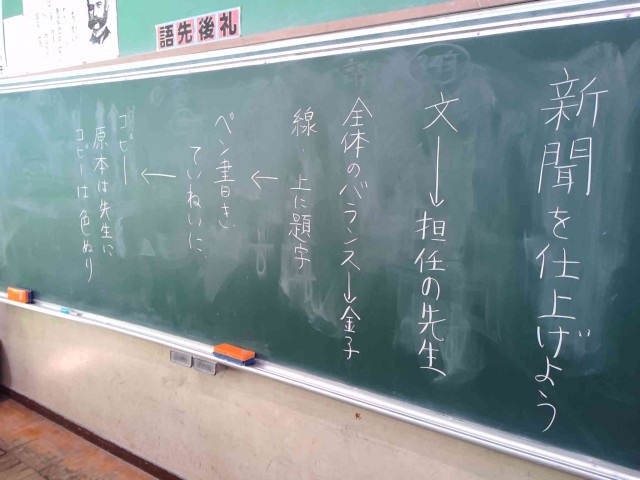 語先後礼
新聞を仕上げよう
文→担任の先生
全体のバランス→金子
線・上に題字
←
ペン書き
ていねいに
←
コピー
原本は先生に
コピーは色ぬり